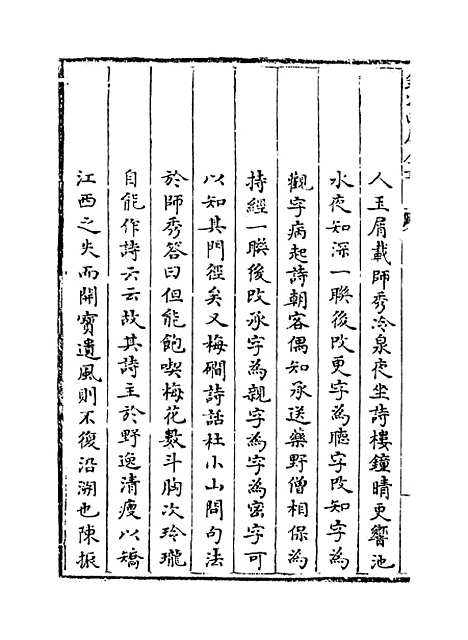 人玉屑載師秀冷泉夜坐詩樓鐘晴更響池
水夜知深一聯後改更字為聽字改知字為
觀字病起詩朝客偶知承送藥野僧相保為
持經一聯後改承字為親字為字為密字可
以知其門徑矣又梅磵詩話杜小山問句法
於師秀答曰但能飽喫梅花數斗胸次玲瓏
自能作詩云云故其詩主於野逸清瘦以矯
江西之失而開寶遺風則不復沿溯也陳振